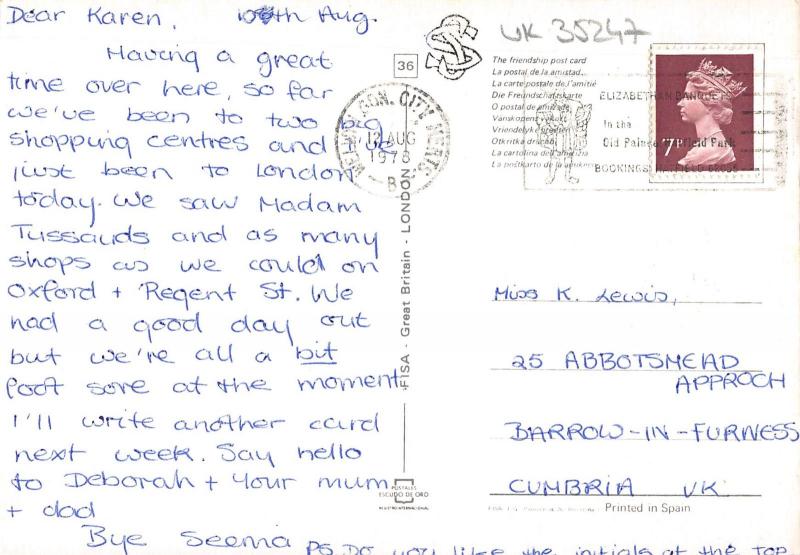 Dear Karen, 10th Aug.
Having a great
time over here, so far
we've been to two big
shopping centres and I've
just been to London
today. We saw Madam
Tussauds and as many
shops as we could on
Oxford + Regent St. We
had a good day out
but we're all a bit
foot sore at the moment
I'll write another card
next week. Say hello
to Deborah + your mum
+ dad
Bye Seema PS. Do you like the initials at the top
36
FISA - Great Britain - LONDON
POSTALES
ESCUDO DE ORO
REGISTRO INTERNACIONAL
UK 35247
The friendship post card
La postal de la amistad...
La carte postale de l'amitié
Die Freundschaftskarte
O postal de amizade
Vanskapens vykort
Vriendelijke groeten
Otkritka
La cartolina dell'amicizia
La postkarto de la amikeco
GDN. CITY, HERTS
12 AUG
1978
ELIZABETHAN BANQUETS
In the
Old Palace Hatfield Park
BOOKINGS HATFIELD
7P
Miss K. Lewis,
25 ABBOTSMEAD
APPROCH
BARROW-IN-FURNESS
CUMBRIA UK
Printed in Spain